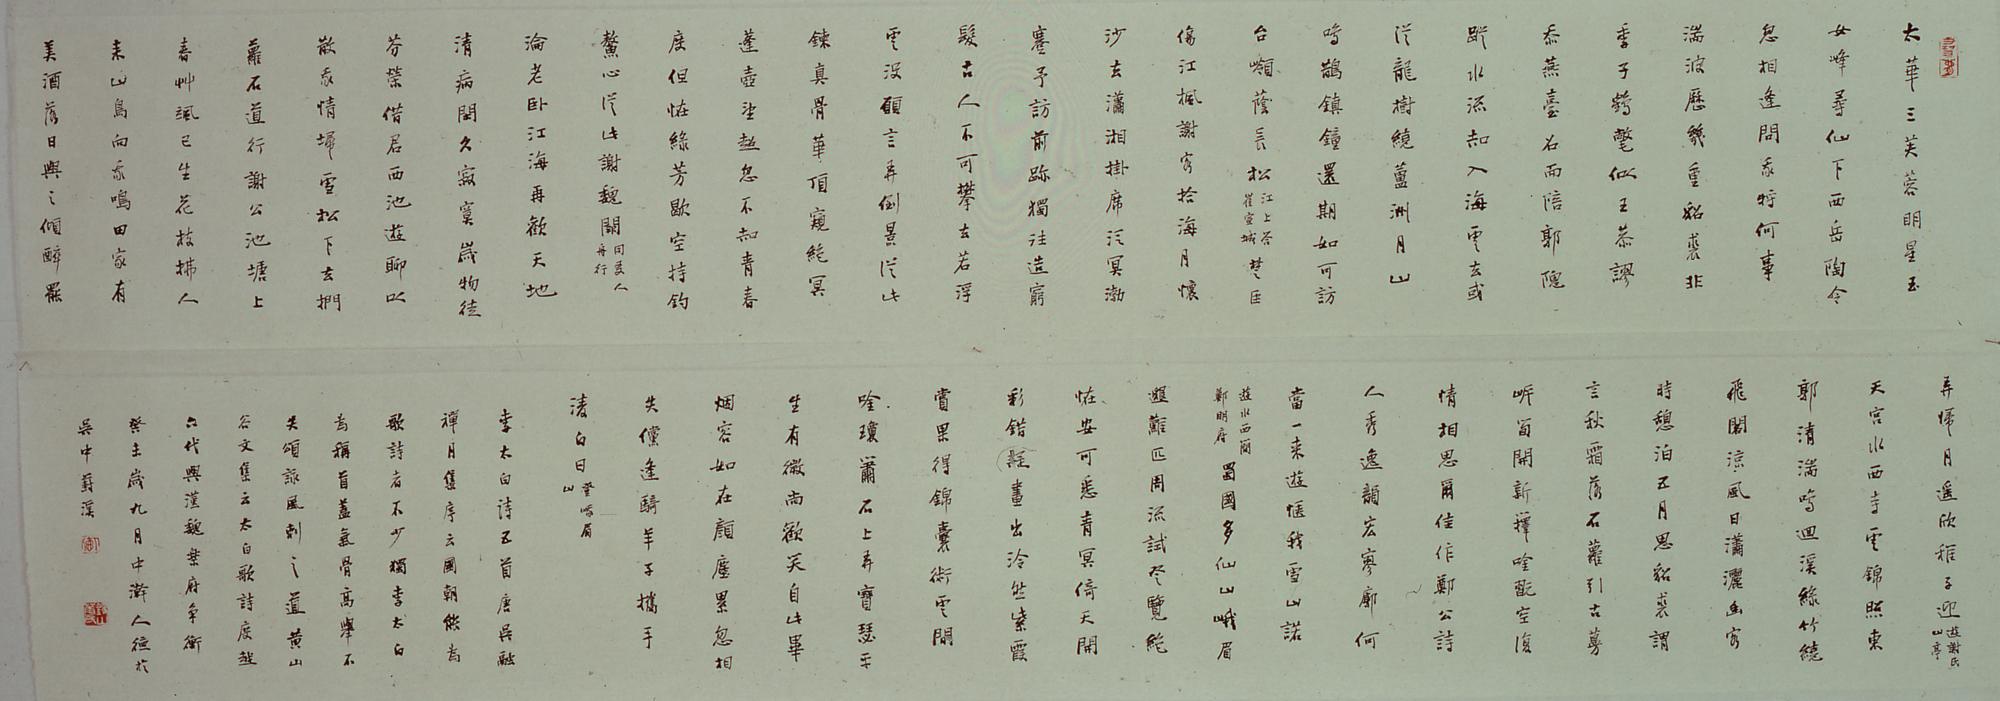 太華三芙蓉明星玉
女峰尋仙下西岳陶令
忽相逢問我將何事
湍波歷幾重貂裘非
季子鶴氅似王恭謬
忝燕臺召而陪郭隗
蹤水流知入海雲去或
從龍樹繞蘆洲月山
鳴鵲鎮鐘還期如可訪
台嶺蔭長松江上答崔宣城楚臣
傷江楓謝客拾海月懷
沙去瀟湘掛席泛冥渤
蹇予訪前跡獨往造窮
髮古人不可攀去若浮
雲沒願言弄倒景從此
鍊真骨華頂窺絕冥
蓬壺望超忽不知青春
度但怪綠芳歇空持釣
鰲心從此謝魏闕同友人舟行
淪老臥江海再歡天地
清病閒久寂寞歲物徒
芬榮借君西池遊聊以
散我情埽雪松下去捫
蘿石道行謝公池塘上
春艸颯已生花枝拂人
來山鳥向我鳴田家有
美酒落日與之傾醉罷
弄歸月遙欣稚子迎遊謝氏山亭
天宮水西寺雲錦照東
郭清湍鳴迴溪綠竹繞
飛閣涼風日瀟灑幽客
時憩泊五月思貂裘謂
言秋霜落石蘿引古蔓
岍筍開新籜唫翫空復
情相思爾佳作鄭公詩
人秀逸韻宏寥廓何
當一來遊愜我雪山諾
遊水西簡鄭明府蜀國多仙山峨眉
邈難匹周流試登覽絕
怪安可悉青冥倚天開
彩錯疑畫出泠然紫霞
賞果得錦囊術雲間
唫瓊簫石上弄寶瑟平
生有微尚歡笑自此畢
烟容如在顏塵累忽相
失儻逢騎羊子攜手
淩白日登峨眉山
李太白诗五首唐吳融
禪月集序云國朝能為
歌詩者不少獨李太白
為稱首蓋氣骨高舉不
失頌詠風刺之道黃山
谷文集云太白歌詩度越
六代與漢魏樂府爭衡
癸未歲九月中澣人徑於
吳中葑溪